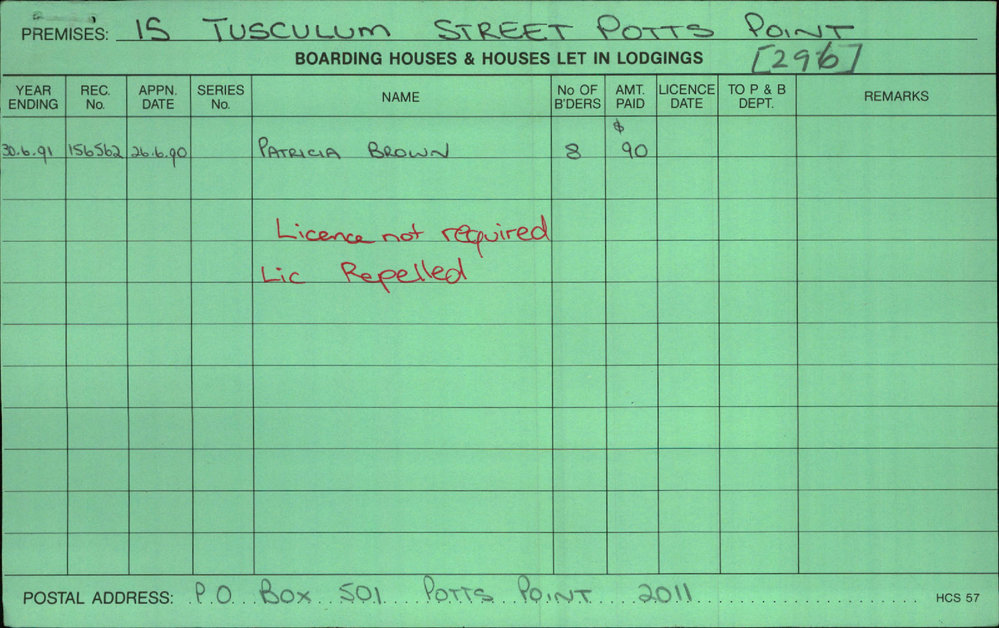 PREMISES: 15 TUSCULUM STREET POTTS POINT
BOARDING HOUSES & HOUSES LET IN LODGINGS [296]
YEAR ENDING REC. No. APPN. DATE SERIES No. NAME No OF B'DERS AMT. PAID LICENCE DATE TO P & B DEPT. REMARKS
$
30.6.91 156562 26.6.90 PATRICIA BROWN 8 90
Licence not required
Lic Repelled
POSTAL ADDRESS: P.O. BOX 501 POTTS POINT 2011 HCS 57